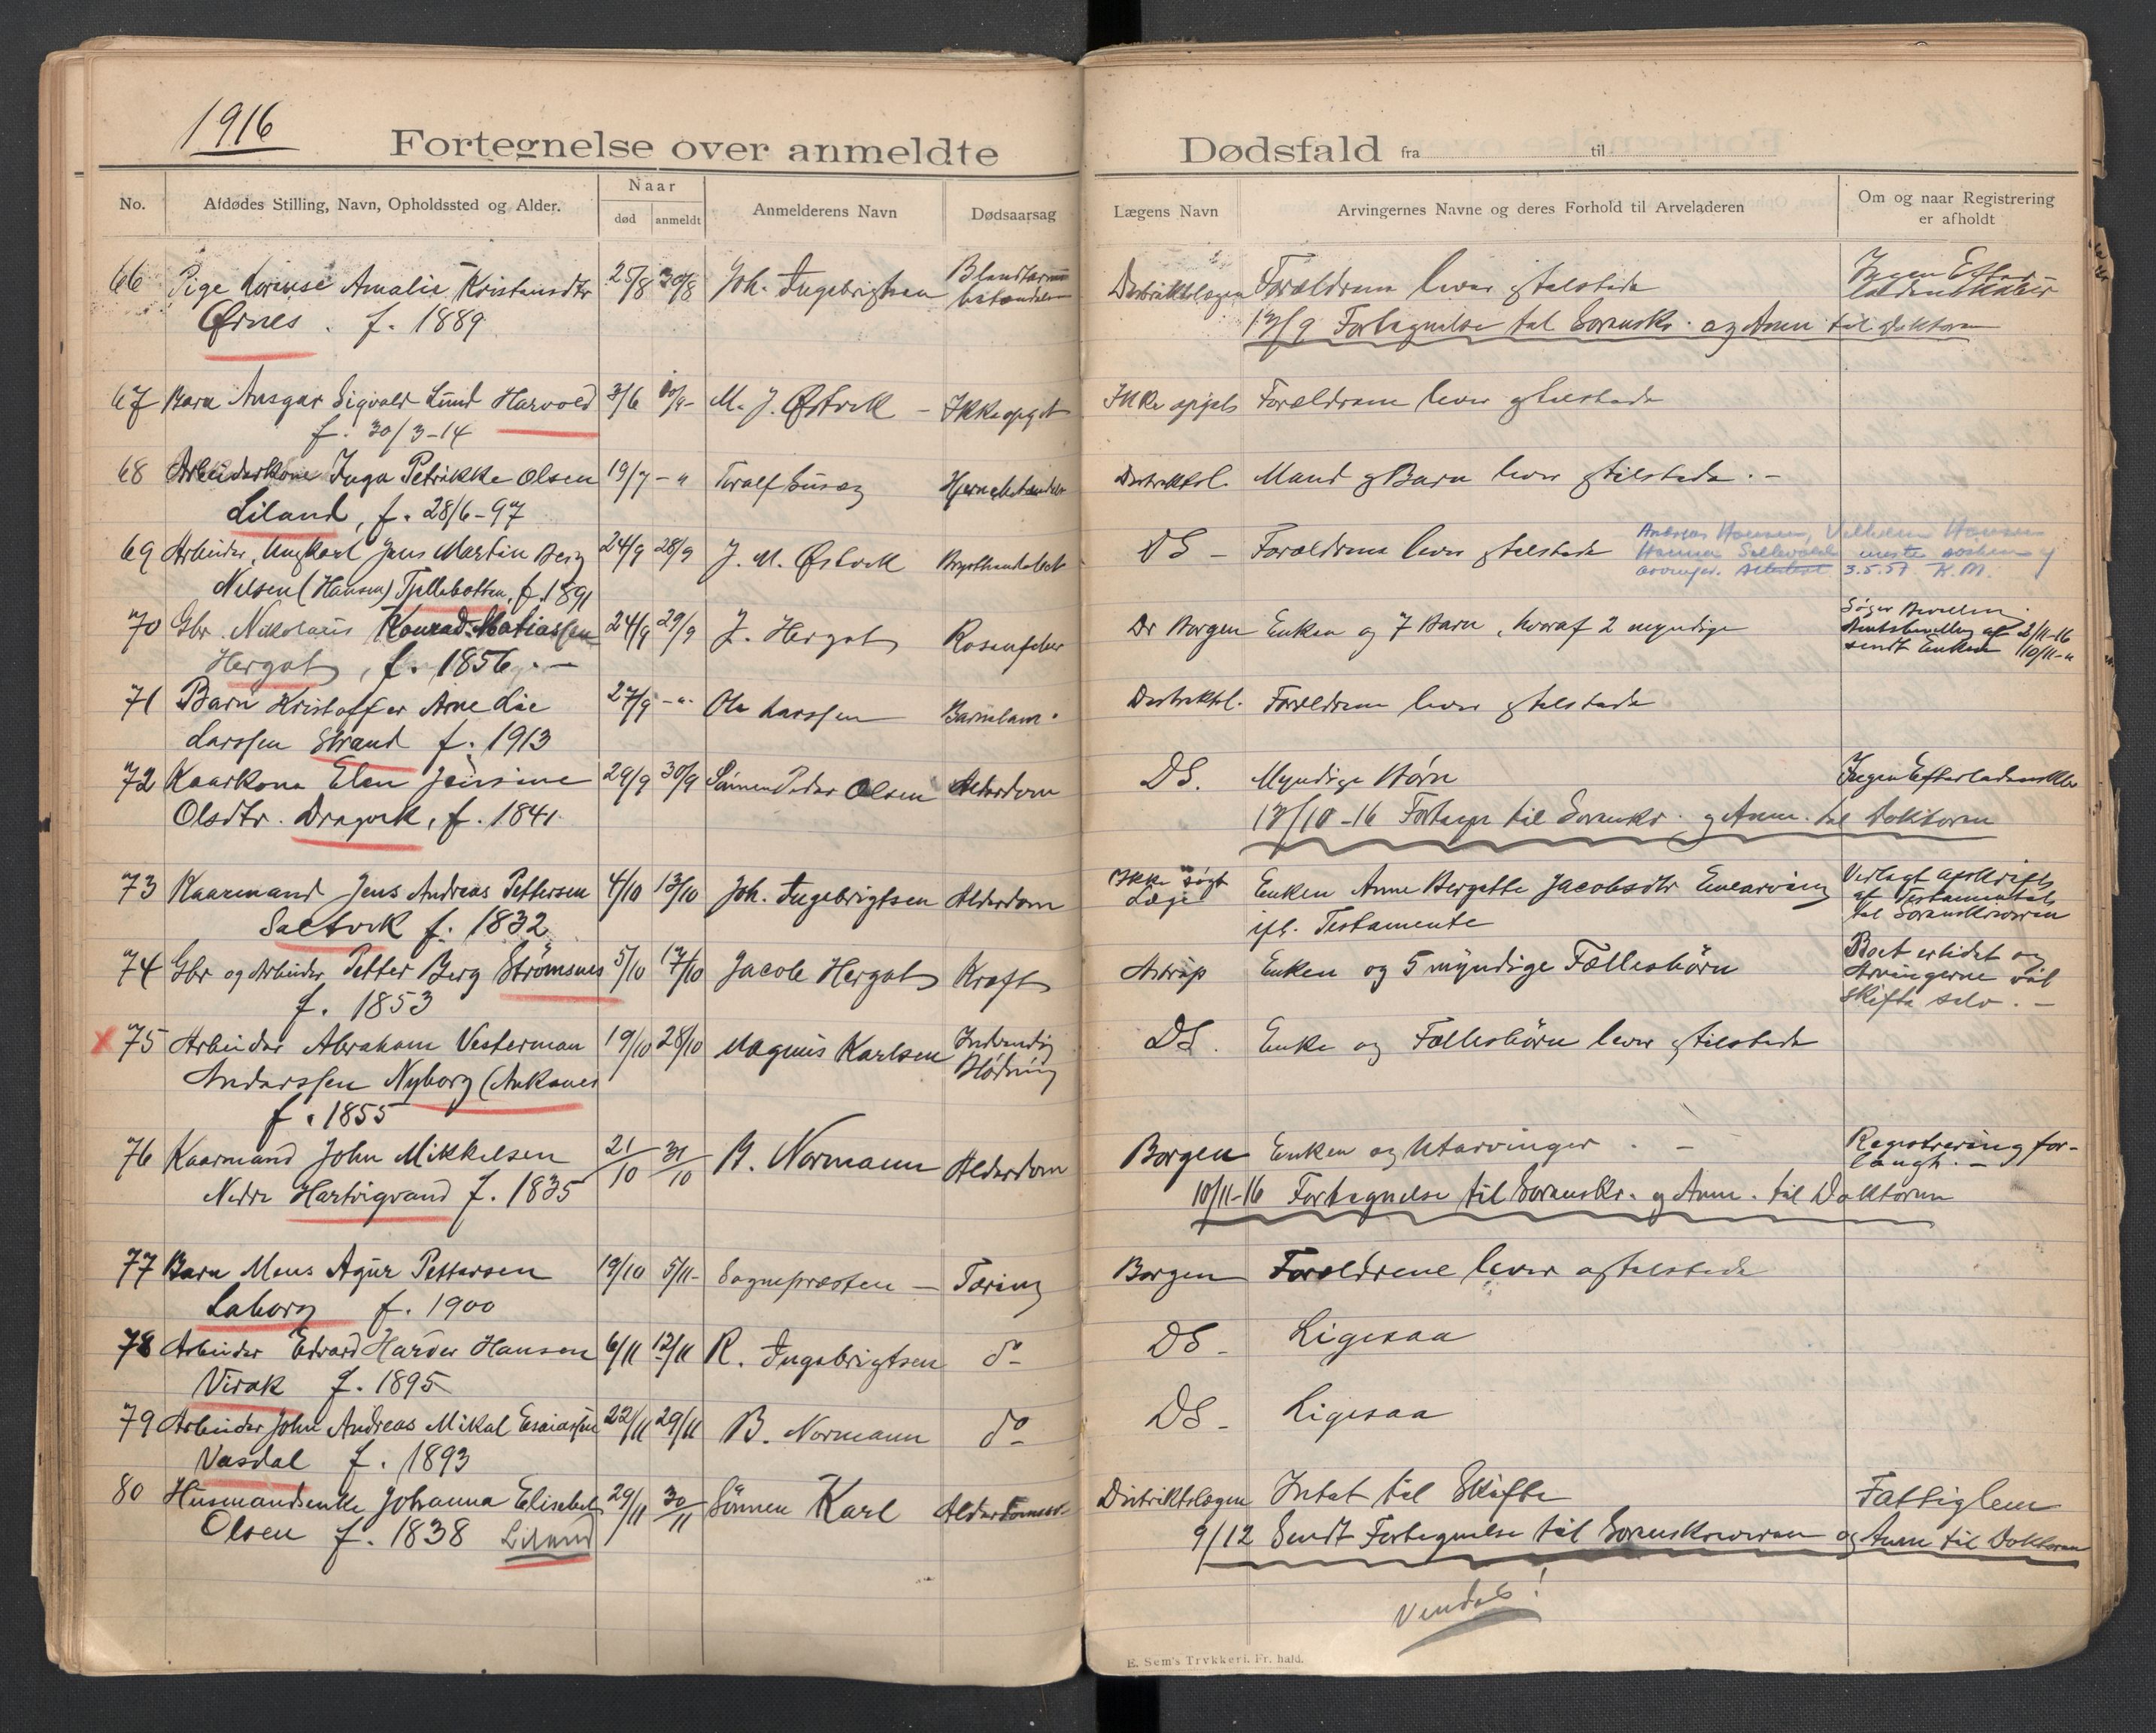 1916
Fortegnelse over anmeldte Dødsfald fra til
No. Afdødes Stilling, Navn, Opholdssted og Alder. Naar død anmeldt Anmelderens Navn Dødsaarsag Lægens Navn Arvingernes Navne og deres Forhold til Arveladeren Om og naar Registrering er afholdt
66 Pige Amalie Kristensdtr 25/8 30/8 Joh. Ingebrigtsen Blindtarm Distriktslægen Forældrene lever og tilstede Ingen Efter
Ørnes . f. 1889 betændelse ladenskaber
12/9 Fortegnelse til Sorenskr. og Anm til Doktoren
67 Barn Ansgar Sigvald Lund Harvold 3/6 10/9- M. J. Østvik – Ikke opgit Ikke opgit Forældrene lever og tilstede
f. 30/3-14
68 Arbeiderkone Inga Petrikke Olsen 19/7 - " Toralf Hjernebetændelse Distriktsl. Mand og Barn lever og tilstede . -
Liland, f. 28/6-97
69 Arbeider, Ungkarl Jens Martin Berg 24/9 28/9 J. M. Østvik DS – Forældrene lever og tilstede Andreas Hansen, Vilhelm Hansen
Nilsen (Hansen) Tjellebotten, f. 1891 Hanna 3.5.57. K.M.
70 Gbr. Nikolaus Konrad Matiassen 24/9 29/9 J. Hergot Rosenfeber Dr Borgen Enken og 7 Barn, hvoraf 2 myndige Søger Bevilling.
Hergot, f. 1856 . – Amtsbevilling af 2/11-16
sendt Enken 10/11-"
71 Barn Kristoffer Arne Lie 27/9 -". Ole Larssen Barnelam. Distriktsl. Forældrene lever og tilstede
Larssen Strand f. 1913
72 Kaarkone Elen Jensine 29/9 30/9 Sønnen Peder Olsen Alderdom DS. Myndige Børn Ingen Efterladenskber
Olsdtr. Dragvik, f. 1841 13/10-16 Fortegn til Sorenskr. og Anm. til Doktoren
73 Kaarmand Jens Andreas Pettersen 4/10 13/10 Joh. Ingebrigtsen Alderdom Ikke søgt Læge Enken Anne Bergette Jacobsdtr Enearving Verlagt Afskrift
Saltvik f. 1832 ifl. Testamente af Testamentet
til Sorenskriveren
74 Gbr og Arbeider Petter Berg Strømsnes 5/10 17/10 Jacob Hergot Kræft Astrup Enken og 5 myndige Fællesbørn Boet er lidet og
f. 1853 Arvingerne vil
skifte selv . –
x 75 Arbeider Abraham Vesterman 19/10 28/10 Magnus Karlsen Indvendig Blødning DS. Enke og Fællesbørn lever og tilstede
Anderssen Nyborg (Ankenes
f. 1855
76 Kaarmand John Mikkelsen 21/10 31/10 B. Normann Alderdom Borgen Enken og Utarvinger . – Registrering for-
Nedre Hartvigvand f. 1835 langt. –
10/11-16 Fortegnelse til Sorenskr. og Anm. til Doktoren
77 Barn Mons Agur Pettersen 19/10 5/11- Sognepresten – Tæring Borgen Forældrene lever og tilstede
Laborg f. 1900
78 Arbeider Edvard Harder Hansen 6/11 12/11 R. Ingebrigtsen do- DS – Ligesaa
Virak f. 1895
79 Arbeider John Andreas Mikal Esaiassen 22/11 29/11 B. Normann do- DS – Ligesaa
Vasdal f. 1893
80 Husmandsenke Johanna Elisabet 29/11 30/11 Sønnen Karl Distriktslægen Intet til Skifte Fattiglem
Olsen f. 1838 Liland 9/12 Sendt Fortegnelse til Sorenskriveren og Anm til Doktoren
Vendes!
E. Sem's Trykkeri. Fr. hald.